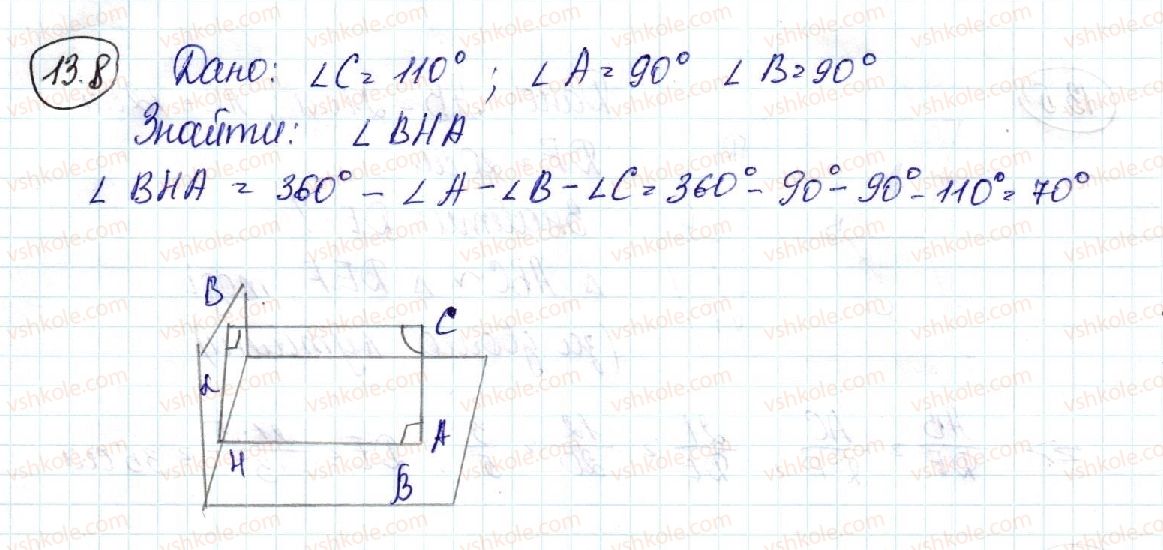 13.8 Дано: ∠C = 110°; ∠A = 90° ∠B = 90°
Знайти: ∠BHA
∠BHA = 360° - ∠A - ∠B - ∠C = 360° - 90° - 90° - 110° = 70°
B
C
α
A
H
B